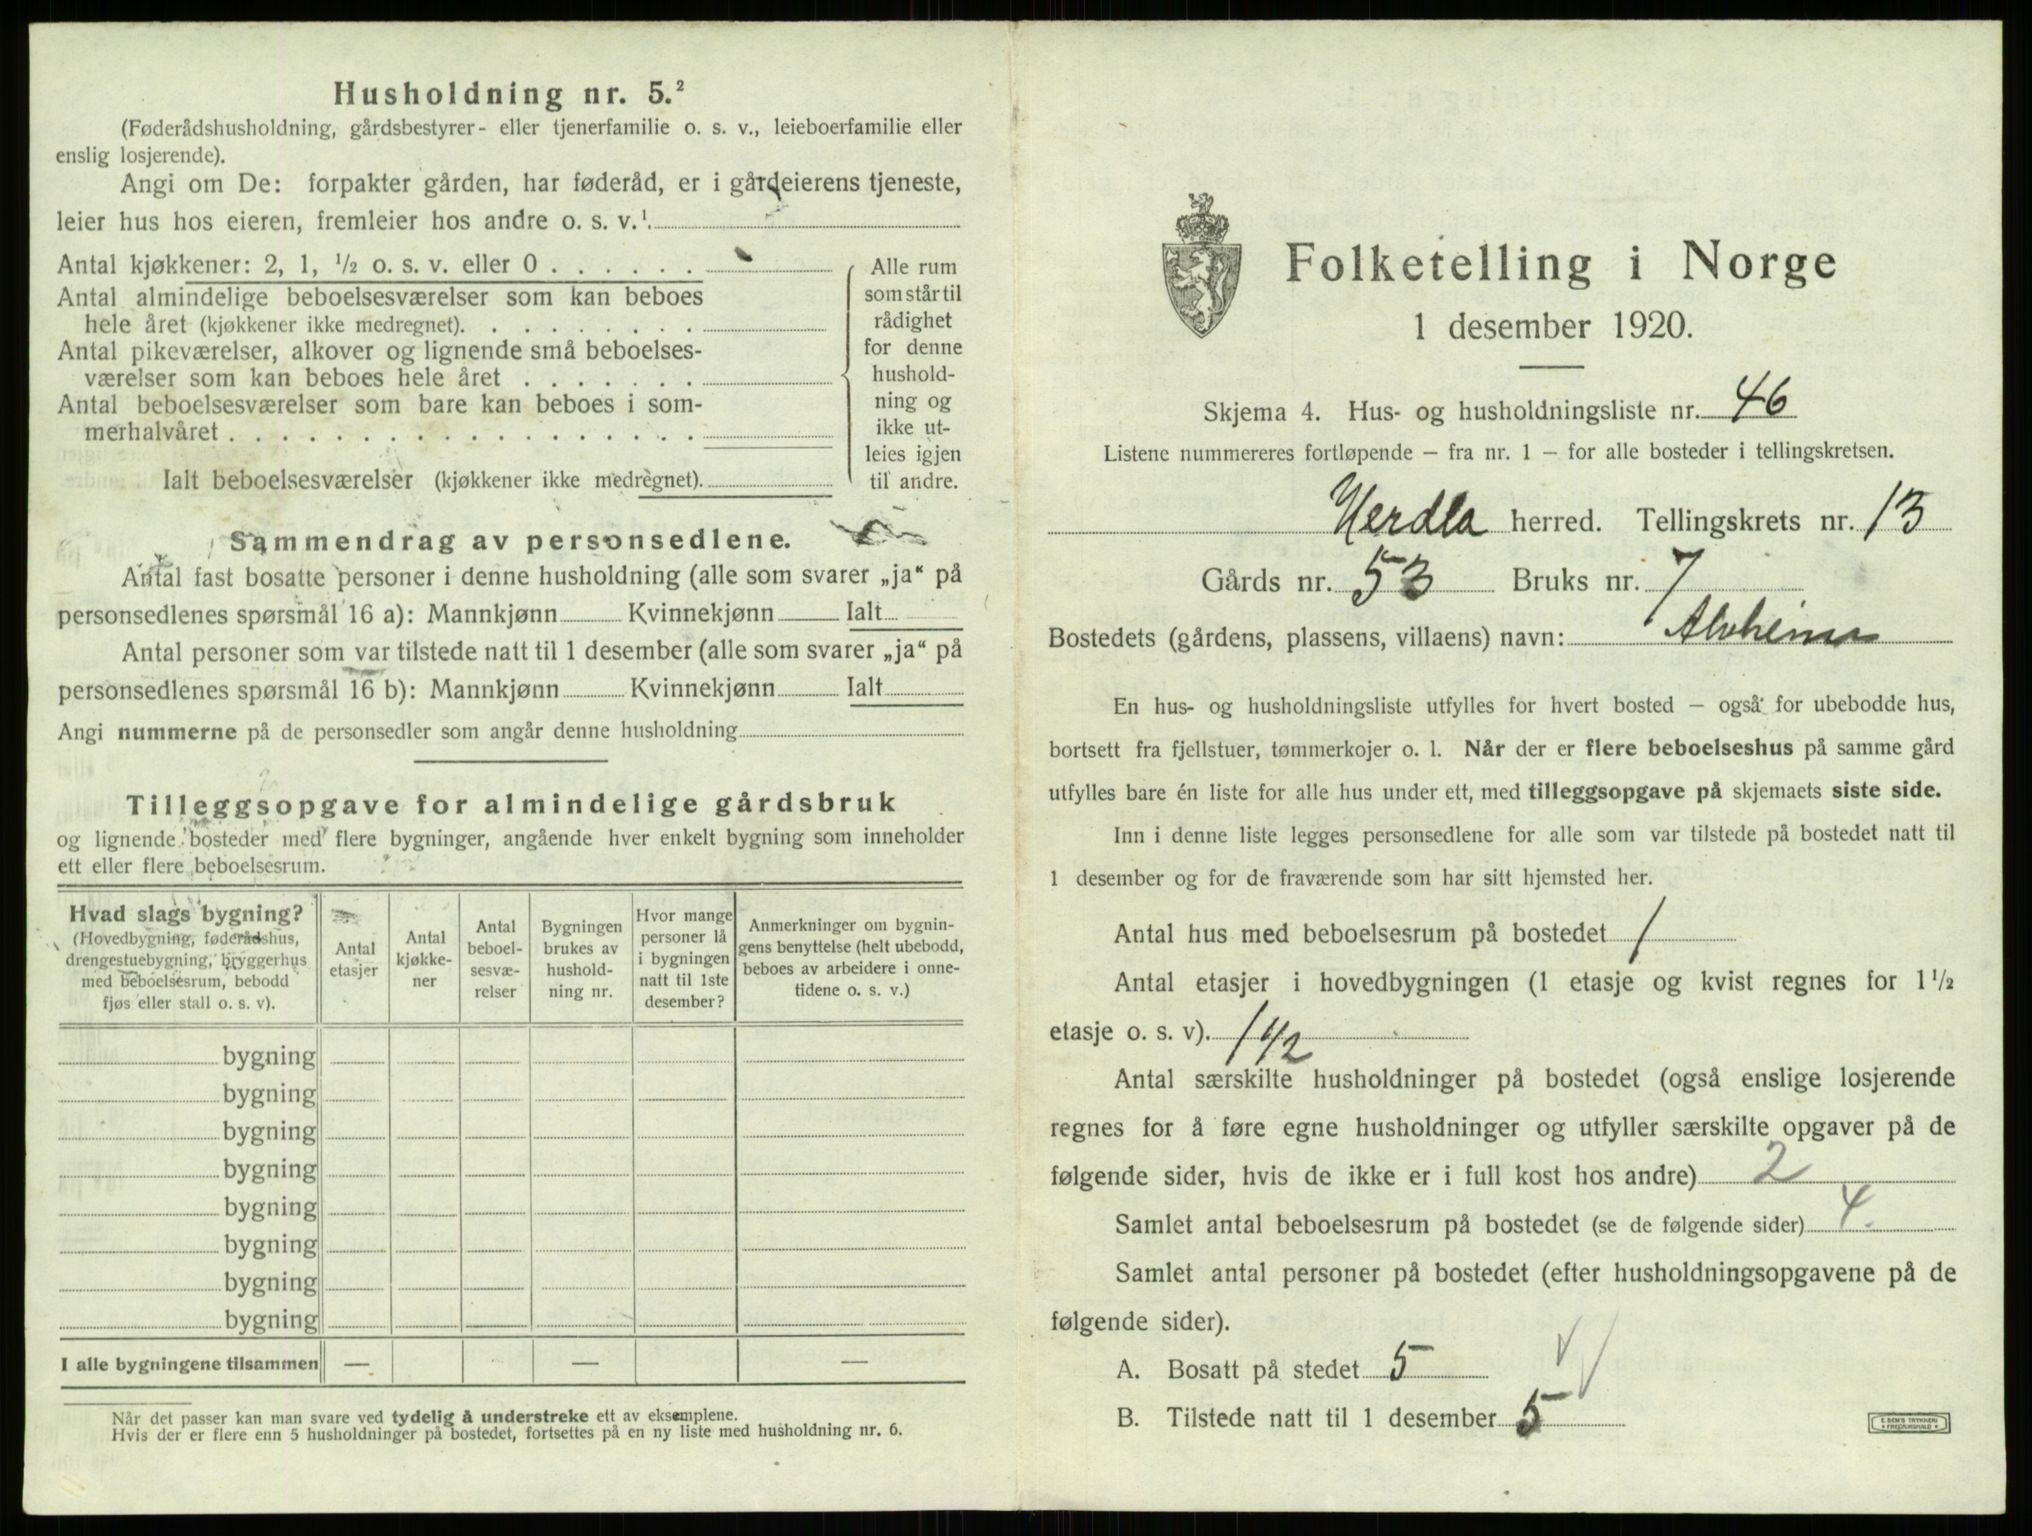 Husholdning nr. 5.²
(Føderådshusholdning, gårdsbestyrer- eller tjenerfamilie o. s. v., leieboerfamilie eller
enslig losjerende).
Angi om De: forpakter gården, har føderåd, er i gårdeierens tjeneste,
leier hus hos eieren, fremleier hos andre o. s. v.¹
Antal kjøkkener: 2, 1, ½ o. s. v. eller 0
Antal almindelige beboelsesværelser som kan beboes
hele året (kjøkkener ikke medregnet).
Antal pikeværelser, alkover og lignende små beboelses-
værelser som kan beboes hele året
Antal beboelsesværelser som bare kan beboes i som-
merhalvåret
Ialt beboelsesværelser (kjøkkener ikke medregnet).
Alle rum
som står til
rådighet
for denne
hushold-
ning og
ikke ut-
leies igjen
til andre.
Sammendrag av personsedlene.
Antal fast bosatte personer i denne husholdning (alle som svarer „ja“ på
personsedlenes spørsmål 16 a): Mannkjønn Kvinnekjønn Ialt
Antal personer som var tilstede natt til 1 desember (alle som svarer „ja“ på
personsedlenes spørsmål 16 b): Mannkjønn Kvinnekjønn Ialt
Angi nummerne på de personsedler som angår denne husholdning
Tilleggsopgave for almindelige gårdsbruk
og lignende bosteder med flere bygninger, angående hver enkelt bygning som inneholder
ett eller flere beboelsesrum.
Hvad slags bygning?
(Hovedbygning, føderådshus,
drengestuebygning, bryggerhus
med beboelsesrum, bebodd
fjøs eller stall o. s. v).
Antal
etasjer
Antal
kjøkke-
ner
Antal
beboel-
sesvæ-
relser
Bygningen
brukes av
hushold-
ning nr.
Hvor mange
personer lå
i bygningen
natt til 1ste
desember?
Anmerkninger om bygnin-
gens benyttelse (helt ubebodd,
beboes av arbeidere i onne-
tidene o. s. v.)
bygning
bygning
bygning
bygning
bygning
bygning
bygning
bygning
I alle bygningene tilsammen — — —
Når det passer kan man svare ved tydelig å understreke ett av eksemplene.
Hvis der er flere enn 5 husholdninger på bostedet, fortsettes på en ny liste med husholdning nr. 6.
Folketelling i Norge
1 desember 1920.
Skjema 4. Hus- og husholdningsliste nr. 46
Listene nummereres fortløpende – fra nr. 1 – for alle bosteder i tellingskretsen.
Herdla herred. Tellingskrets nr. 13
Gårds nr. 53 Bruks nr. 7
Bostedets (gårdens, plassens, villaens) navn: Alvheim
En hus- og husholdningsliste utfylles for hvert bosted – også for ubebodde hus,
bortsett fra fjellstuer, tømmerkojer o. l. Når der er flere beboelseshus på samme gård
utfylles bare én liste for alle hus under ett, med tilleggsopgave på skjemaets siste side.
Inn i denne liste legges personsedlene for alle som var tilstede på bostedet natt til
1 desember og for de fraværende som har sitt hjemsted her.
Antal hus med beboelsesrum på bostedet 1
Antal etasjer i hovedbygningen (1 etasje og kvist regnes for 1½
etasje o. s. v). 1 1/2
Antal særskilte husholdninger på bostedet (også enslige losjerende
regnes for å føre egne husholdninger og utfyller særskilte opgaver på de
følgende sider, hvis de ikke er i full kost hos andre) 2
Samlet antal beboelsesrum på bostedet (se de følgende sider) 4.
Samlet antal personer på bostedet (efter husholdningsopgavene på de
følgende sider).
A. Bosatt på stedet 5
B. Tilstede natt til 1 desember 5
E. SEM'S TRYKKERI
FREDRIKSHALD